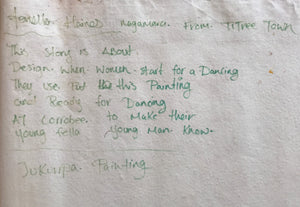 Nogamara. From TiTree Town
This Story is About.
Design. When. Women. start for a Dancing
They use Put this Painting
and Ready for Dancing
AT Corrobee. to Make their
Young fella Young Man. Know.
Jukurrpa. Painting